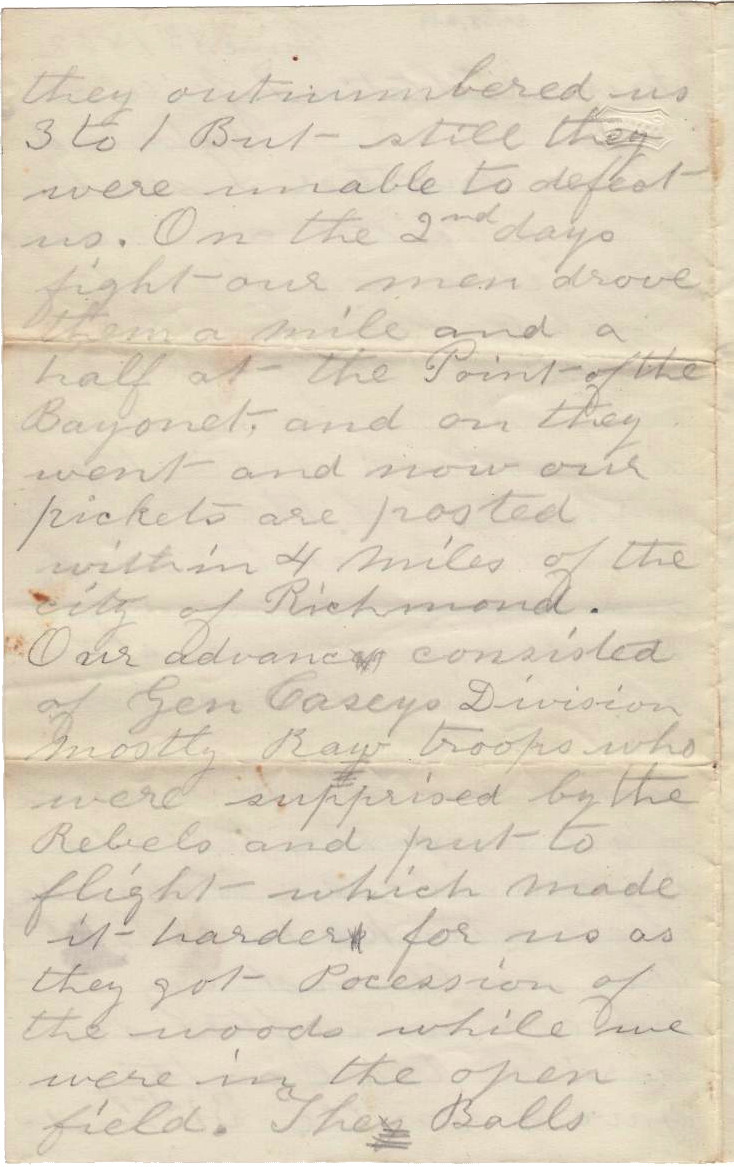 they outnumbered us
3 to 1 But still they
were unable to defeat
us. On the 2nd days
fight our men drove
them a mile and a
half at the Point of the
Bayonet. and on they
went and now our
pickets are posted
within 4 miles of the
city of Richmond.
Our advance consisted
of Gen Caseys Division
mostly Raw troops who
were supprised by the
Rebels and put to
flight which made
it harder for us as
they got Pocession of
the woods while we
were in the open
field. The Balls